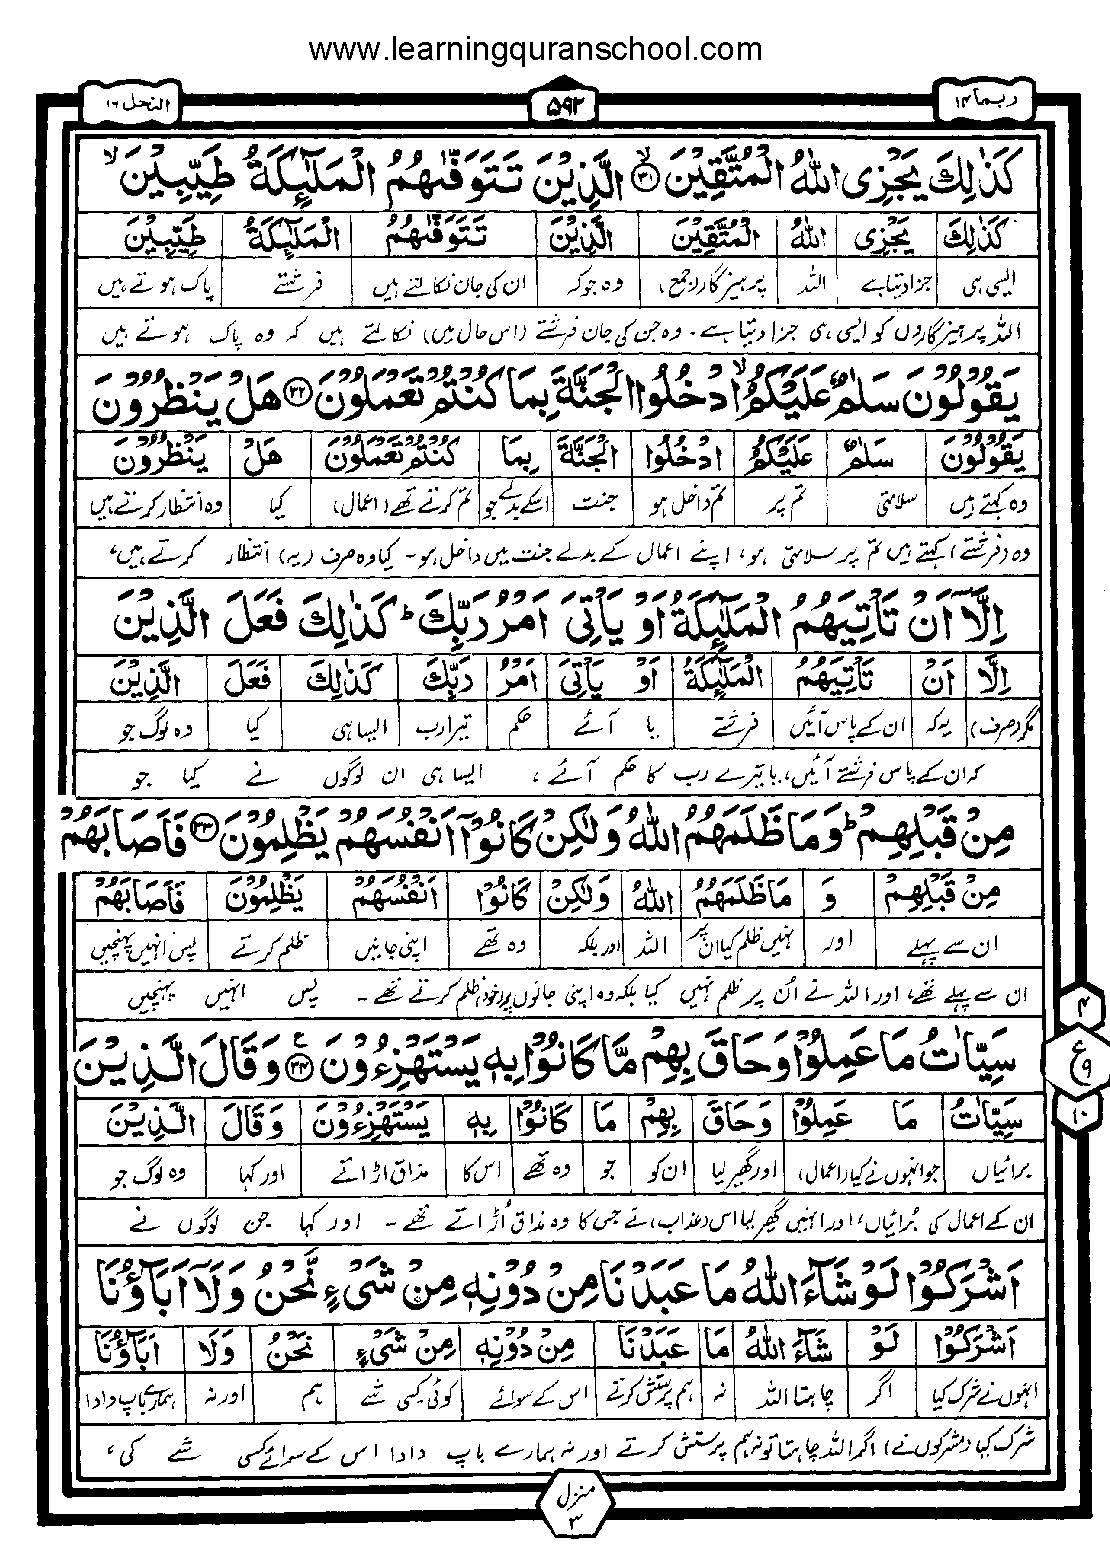 www.learningquranschool.com
ربما ۱۴
۵۹۲
النحل ۱۶
كَذٰلِكَ يَجْزِى اللّٰهُ الْمُتَّقِيْنَ ۙ﴿۳۱﴾ الَّذِيْنَ تَتَوَفّٰىهُمُ الْمَلٰٓئِكَةُ طَيِّبِيْنَ ۙ
كَذٰلِكَ يَجْزِى اللّٰهُ الْمُتَّقِيْنَ الَّذِيْنَ تَتَوَفّٰىهُمُ الْمَلٰٓئِكَةُ طَيِّبِيْنَ
ایسی ہی جزا دیتا ہے اللہ پرہیزگار (جمع) وہ جو کہ ان کی جان نکالتے ہیں فرشتے پاک ہوتے ہیں
اللہ پرہیزگاروں کو ایسی ہی جزا دیتا ہے۔ وہ جن کی جان فرشتے (اس حال میں) نکالتے ہیں کہ وہ پاک ہوتے ہیں
يَقُوْلُوْنَ سَلٰمٌ عَلَيْكُمُ ۙ ادْخُلُوا الْجَنَّةَ بِمَا كُنْتُمْ تَعْمَلُوْنَ ﴿۳۲﴾ هَلْ يَنْظُرُوْنَ
يَقُوْلُوْنَ سَلٰمٌ عَلَيْكُمُ ادْخُلُوا الْجَنَّةَ بِمَا كُنْتُمْ تَعْمَلُوْنَ هَلْ يَنْظُرُوْنَ
وہ کہتے ہیں سلامتی تم پر تم داخل ہو جنت اسکے بدلے جو تم کرتے تھے (اعمال) کیا وہ انتظار کرتے ہیں
وہ (فرشتے) کہتے ہیں تم پر سلامتی ہو، اپنے اعمال کے بدلے جنت میں داخل ہو۔ کیا وہ صرف (یہ) انتظار کرتے ہیں،
اِلَّاۤ اَنْ تَاْتِيَهُمُ الْمَلٰٓئِكَةُ اَوْ يَاْتِىَ اَمْرُ رَبِّكَ ؕ كَذٰلِكَ فَعَلَ الَّذِيْنَ
اِلَّاۤ اَنْ تَاْتِيَهُمُ الْمَلٰٓئِكَةُ اَوْ يَاْتِىَ اَمْرُ رَبِّكَ كَذٰلِكَ فَعَلَ الَّذِيْنَ
مگر (صرف) یہ کہ ان کے پاس آئیں فرشتے یا آئے حکم تیرا رب ایسا ہی کیا وہ لوگ جو
کہ ان کے پاس فرشتے آئیں، یا تیرے رب کا حکم آئے، ایسا ہی ان لوگوں نے کیا جو
مِنْ قَبْلِهِمْ ؕ وَمَا ظَلَمَهُمُ اللّٰهُ وَلٰكِنْ كَانُوْۤا اَنْفُسَهُمْ يَظْلِمُوْنَ ﴿۳۳﴾ فَاَصَابَهُمْ
مِنْ قَبْلِهِمْ وَ مَا ظَلَمَهُمُ اللّٰهُ وَلٰكِنْ كَانُوْۤا اَنْفُسَهُمْ يَظْلِمُوْنَ فَاَصَابَهُمْ
ان سے پہلے اور نہیں ظلم کیا ان پر اللہ اور بلکہ وہ تھے اپنی جانیں ظلم کرتے پس انہیں پہنچیں
ان سے پہلے تھے، اور اللہ نے اُن پر ظلم نہیں کیا بلکہ وہ اپنی جانوں پر (خود) ظلم کرتے تھے۔ پس انہیں پہنچیں
سَيِّاٰتُ مَا عَمِلُوْا وَحَاقَ بِهِمْ مَّا كَانُوْا بِهٖ يَسْتَهْزِءُوْنَ ﴿۳۴﴾ع وَقَالَ الَّذِيْنَ
سَيِّاٰتُ مَا عَمِلُوْا وَحَاقَ بِهِمْ مَا كَانُوْا بِهٖ يَسْتَهْزِءُوْنَ وَقَالَ الَّذِيْنَ
برائیاں جو انہوں نے کیا (اعمال) اور گھیر لیا ان کو جو وہ تھے اس کا مذاق اڑاتے اور کہا وہ لوگ جو
ان کے اعمال کی بُرائیاں، اور انہیں گھیر لیا اس (عذاب) نے جس کا وہ مذاق اُڑاتے تھے۔ اور کہا جن لوگوں نے
۴
ع
۹
۱۰
اَشْرَكُوْا لَوْ شَآءَ اللّٰهُ مَا عَبَدْنَا مِنْ دُوْنِهٖ مِنْ شَىْءٍ نَّحْنُ وَلَاۤ اٰبَآؤُنَا
اَشْرَكُوْا لَوْ شَآءَ اللّٰهُ مَا عَبَدْنَا مِنْ دُوْنِهٖ مِنْ شَىْءٍ نَحْنُ وَلَاۤ اٰبَآؤُنَا
انہوں نے شرک کیا اگر چاہتا اللہ نہ ہم پرستش کرتے اس کے سوائے کوئی کسی شے ہم اور نہ ہمارے باپ دادا
شرک کیا (مشرکوں نے) اگر اللہ چاہتا تو نہ ہم پرستش کرتے اور نہ ہمارے باپ دادا اس کے سوائے کسی شے کی،
منزل
۳